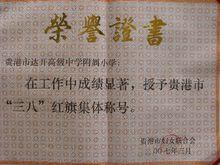 榮譽證書
贵港市达开高级中学附属小学：
在工作中成绩显著，授予贵港市
“三八”红旗集体称号。
贵港市妇女联合会
二〇〇七年三月